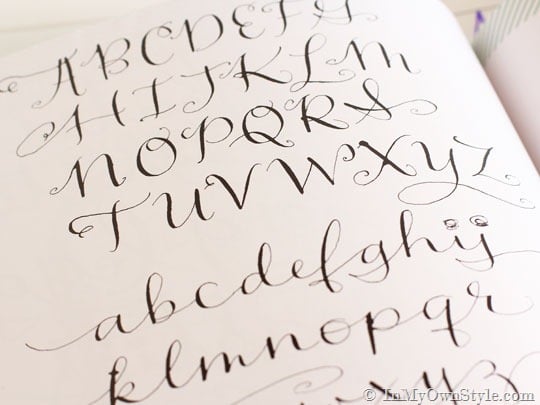 ABCDEFG
HIJKLM
NOPQRS
TUVWXYZ
abcdefghij
klmnopqr
xyz
© InMyOwnStyle.com